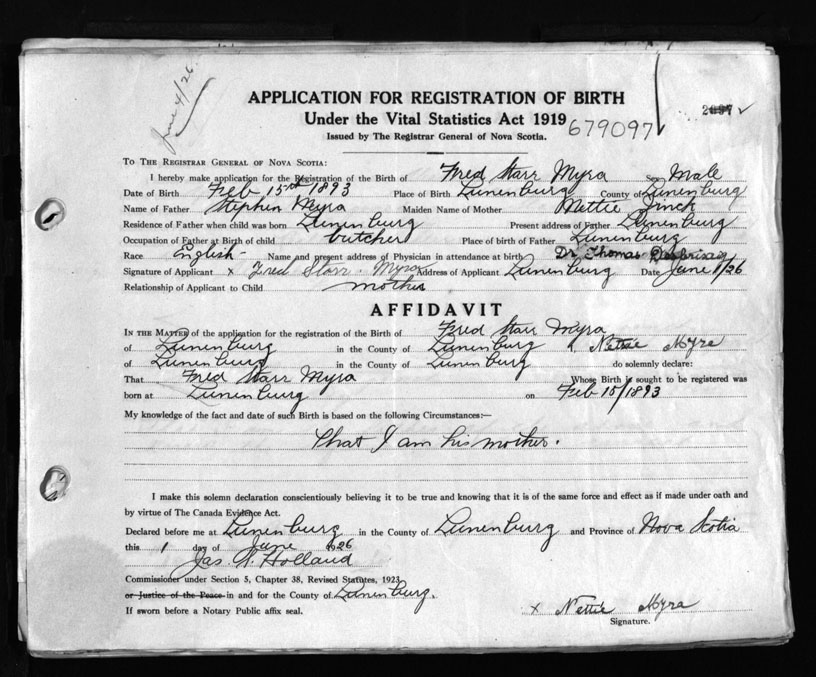 June 4/26.
APPLICATION FOR REGISTRATION OF BIRTH
Under the Vital Statistics Act 1919
679097
Issued by The Registrar General of Nova Scotia.
TO THE REGISTRAR GENERAL OF NOVA SCOTIA:
I hereby make application for the Registration of the Birth of Fred Starr Myra Sex Male
Date of Birth Feb 15th 1893 Place of Birth Lunenburg County of Lunenburg
Name of Father Stephen Myra Maiden Name of Mother Mettie Zinck
Residence of Father when child was born Lunenburg Present address of Father Lunenburg
Occupation of Father at Birth of child butcher Place of birth of Father Lunenburg
Race English- Name and present address of Physician in attendance at birth Dr. Thomas Desbrisay
Signature of Applicant x Fred Starr. Myra Address of Applicant Lunenburg Date June 1/26
Relationship of Applicant to Child mother
AFFIDAVIT
IN THE MATTER of the application for the registration of the Birth of Fred Starr Myra
of Lunenburg in the County of Lunenburg I, Nettie Myra
of Lunenburg in the County of Lunenburg do solemnly declare:
That Fred Starr Myra Whose Birth is sought to be registered was
born at Lunenburg on Feb 15/1893
My knowledge of the fact and date of such Birth is based on the following Circumstances:—
That I am his mother.
I make this solemn declaration conscientiously believing it to be true and knowing that it is of the same force and effect as if made under oath and
by virtue of The Canada Evidence Act.
Declared before me at Lunenburg in the County of Lunenburg and Province of Nova Scotia
this 1 day of June 1926
Jas A. Holland
Commissioner under Section 5, Chapter 38, Revised Statutes, 1923
or Justice of the Peace in and for the County of Lunenburg.
If sworn before a Notary Public affix seal.
x Nettie Myra
Signature.